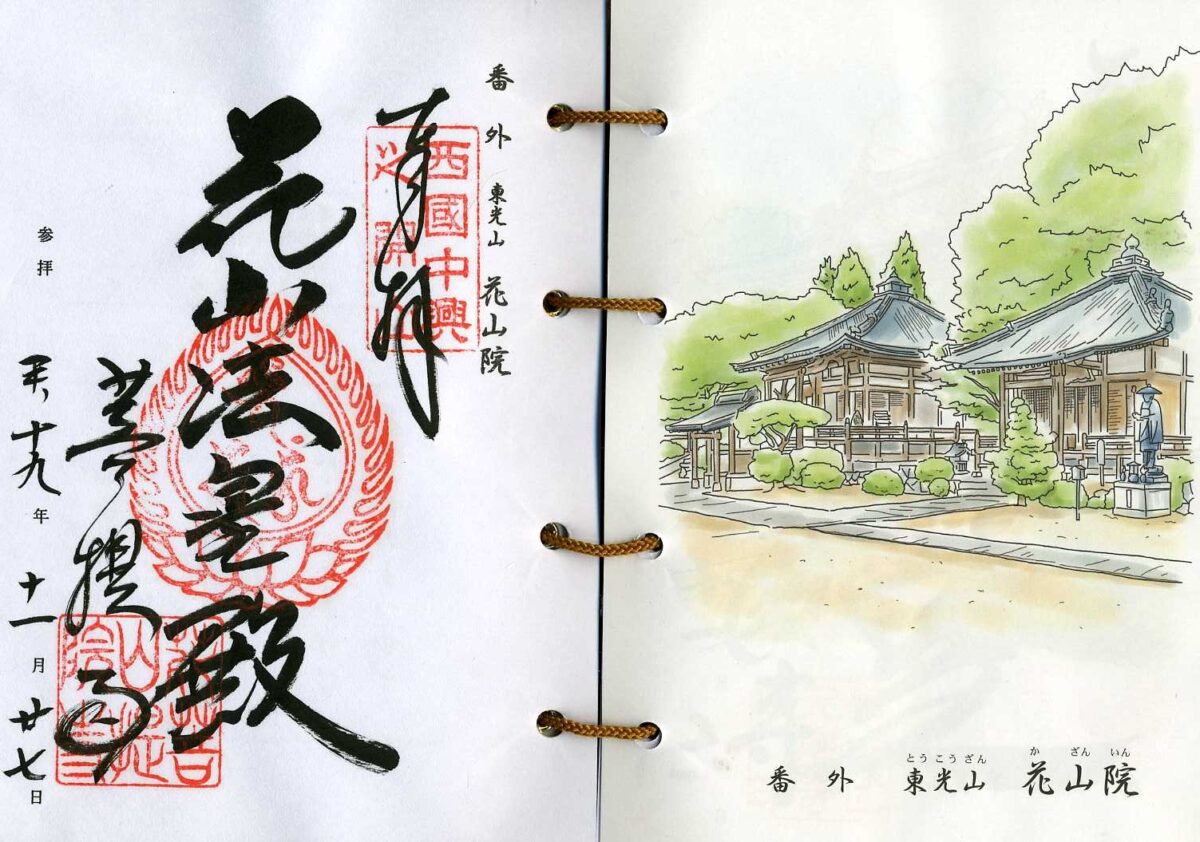 番外 東光山 花山院
奉拝
西國中興
花山法皇殿
菩提寺
参拝 平、十九年 十一月 廿七日
とうこうざん かざんいん
番外 東光山 花山院